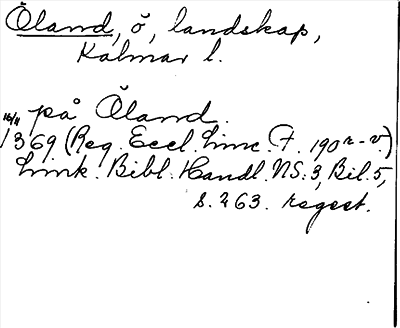 Öland, ö, landskap,
Kalmar l.
på Öland.
16/11 1369 (Reg. Eccl. Linc. F. 190r-v.)
Link. Bibl. Handl. NS:3, Bil. 5,
s. 263. regest.